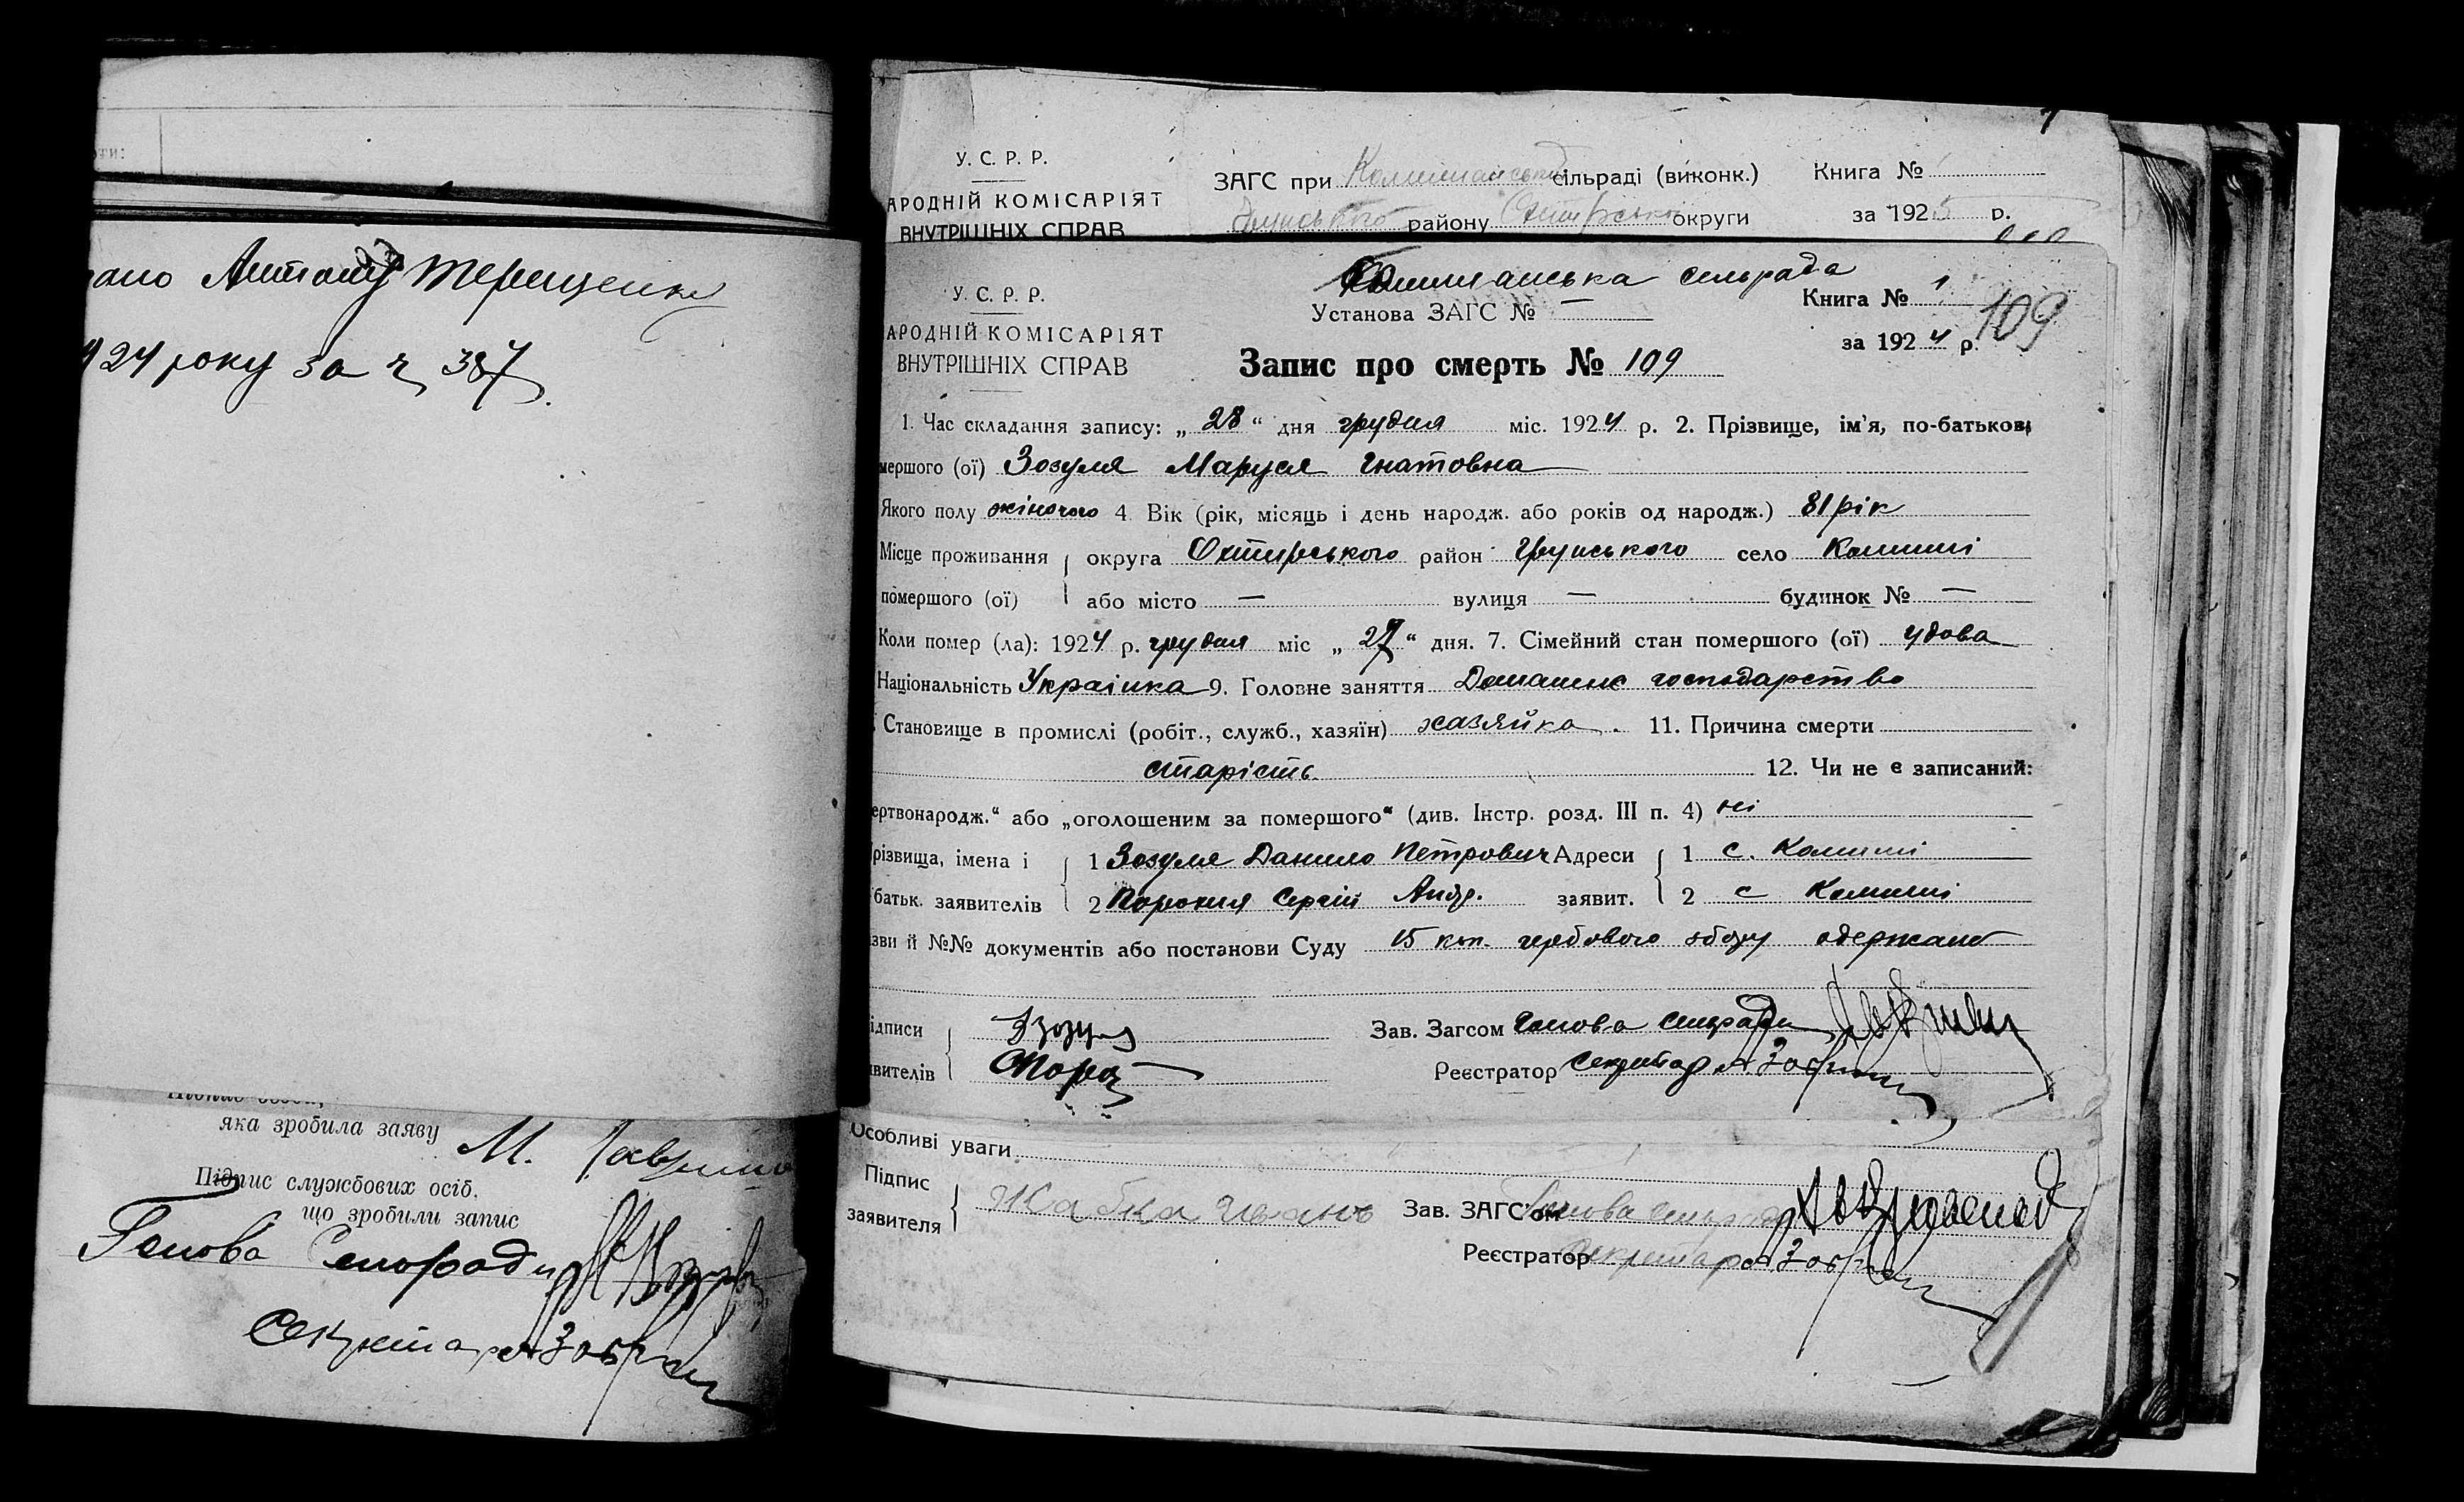 ти:
ано Антону Терещенку
924 року за ч 387.
яка зробила заяву М.
Підпис службових осіб,
що зробили запис
Голова Сельради
Секретар
У. С. Р. Р.
АРОДНІЙ КОМІСАРІЯТ
ВНУТРІШНІХ СПРАВ
ЗАГС при Комишанській сільраді (виконк.)
Грунського району Охтирської округи
Книга №
за 1925 р.
Комишанська сельрада
У. С. Р. Р.
АРОДНІЙ КОМІСАРІЯТ
ВНУТРІШНІХ СПРАВ
Установа ЗАГС № —
Книга № 1
за 1924 р.
109
Запис про смерть № 109
1. Час складання запису: „ 28 “ дня грудня міс. 1924 р. 2. Прізвище, ім'я, по-батькові
мершого (ої) Зозуля Маруся Гнатовна
Якого полу жіночого 4 Вік (рік, місяць і день народж. або років од народж.) 81 рік
Місце проживання округа Охтирського район Грунського село Комиші
помершого (ої) або місто — вулиця — будинок № —
Коли помер (ла): 1924 р. грудня міс „ 27 “ дня. 7. Сімейний стан помершого (ої) удова
Національність Українка 9. Головне заняття Домашнє господарство
Становище в промислі (робіт., служб., хазяїн) хазяйка. 11. Причина смерти
старість. 12. Чи не є записаний:
ертвонародж.“ або „оголошеним за помершого“ (див. Інстр. розд. III п. 4) ні
різвища, імена і 1 Зозуля Данило Петрович Адреси 1 с. Комиші
батьк. заявителів 2 Сергій Андр. заявит. 2 с Комиші
зви й №№ документів або постанови Суду 15 коп. гербового збору одержано
ідписи Зозуля Зав. Загсом Голова сельради
явителів Реєстратор Секретар
Особливі уваги
Підпис
заявителя Жабка Иванъ Зав. ЗАГС'ом Голова сельради
Реєстратор Секретар